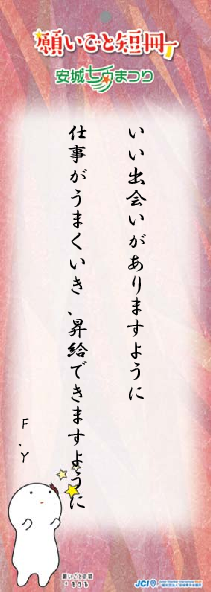 願いごと短冊
安城七夕まつり
いい出会いがありますように
仕事がうまくいき、昇給できますように
F.Y
JCI